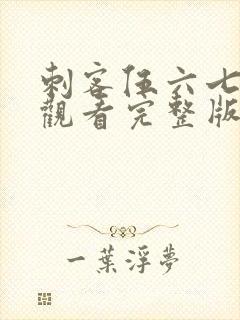 刺客伍六七
觀看完整版
一葉浮夢